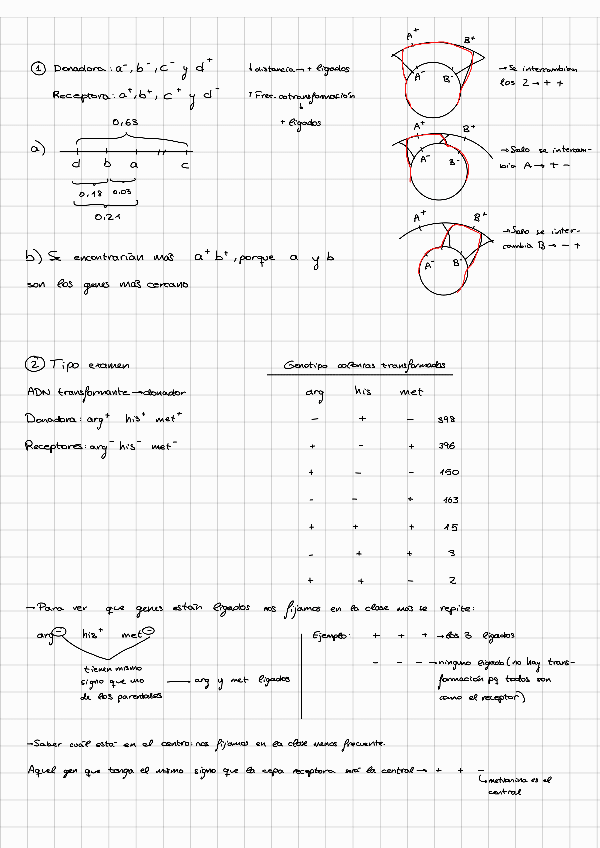 ① Donadora: a⁻, b⁻, c⁻ y d⁺
Receptora: a⁺, b⁺, c⁺ y d⁻
↓distancia → + ligados
↑Frec. cotransformación
↓
+ ligados
A⁺ B⁺
A⁻ B⁻
→ Se intercambian
los 2 → + +
A⁺ B⁺
A⁻ B⁻
→ Solo se intercam-
bia A → + -
A⁺ B⁺
A⁻ B⁻
→ Solo se inter-
cambia B → - +
0,63
a)
d b a c
0,18 0,03
0,21
b) Se encontrarían más a⁺ b⁺, porque a y b
son los genes más cercano
② Tipo examen
ADN transformante → donador
Donadora: arg⁺ his⁺ met⁺
Receptores: arg⁻ his⁻ met⁻
Genotipo colonias transformadas
arg his met
- + - 398
+ - + 396
+ - - 150
- - + 163
+ + + 15
- + + 3
+ + - 2
→ Para ver que genes están ligados nos fijamos en la clase más se repite:
arg⁻ his⁺ met⁻
tienen mismo
signo que uno
de los parentales
arg y met ligados
Ejemplo: + + + → los 3 ligados
- - - → ninguno ligado (no hay trans-
formación pq todos son
como el receptor)
→ Saber cuál está en el centro: nos fijamos en la clase menos frecuente.
Aquel gen que tenga el mismo signo que la cepa receptora será la central → + + -
metionina es el
central